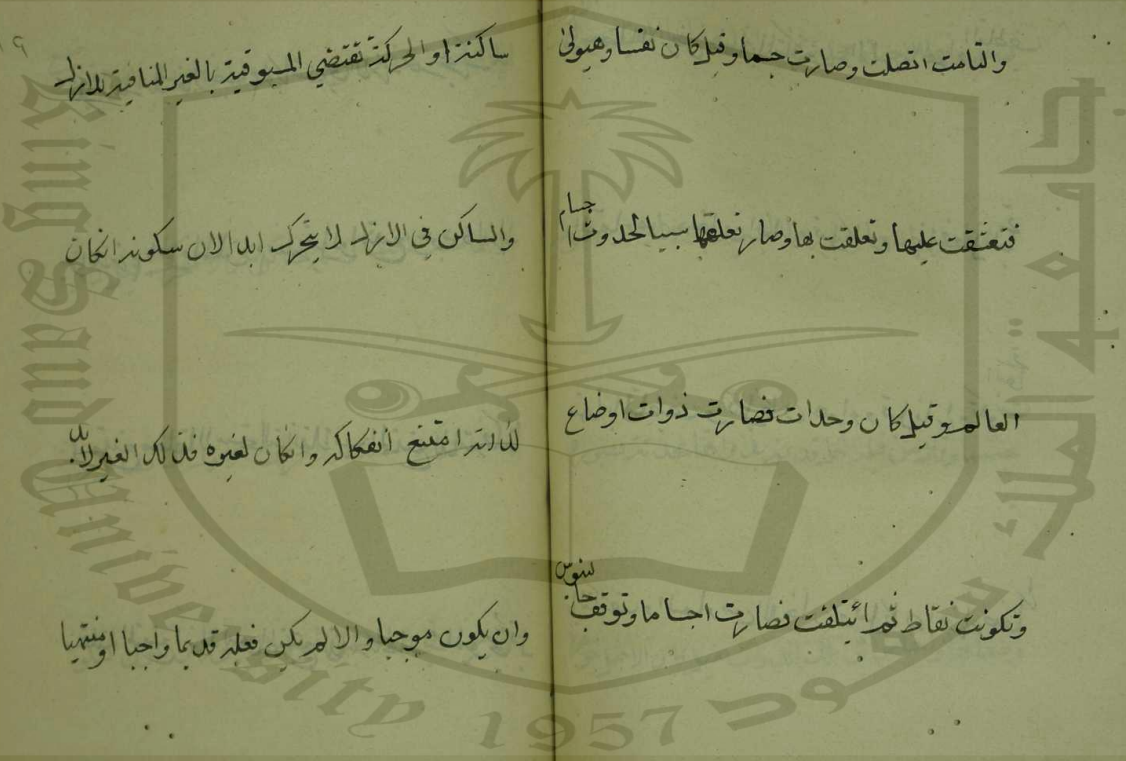 والتامت اتصلت وصارت جسما وقيل كان نفسا وهيولى
فتعشقت عليها وتعلقت بها وصار تعلقها سببا لحدوث اجسام
العالم وقيل كان وحدات فصارت ذوات اوضاع
وتكونت نقاط ثم ائتلفت فصارت اجساما وتوقف جالينوس
ساكنة او الحركة تقتضي المسبوقية بالغير المنافية للازل
والساكن في الازل لا يتحرك ابدا لان سكونه انكان
لذاته امتنع انفكاكه وانكان لغيره فذلك الغير لابد
وان يكون موجبا والا لم يكن فعله قديما واجبا او منتهيا
٩
جامعة الملك سعود
King Saud University
1957